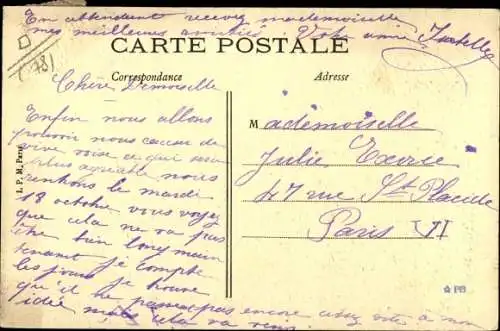 En attendant recevez mademoiselle
mes meilleures amitiés. Votre amie Isabelle
CARTE POSTALE
Correspondance
Adresse
Chère Demoiselle
Enfin nous allons
pouvoir nous causer de
vive voix ce qui sera
plus agréable nous
rentrons le mardi
18 octobre vous voyez
que cela ne va pas
être bien long main
tenant je compte
les jours je trouve
que il ne passent pas encore assez vite à mon
idée mais cela va venir
Mademoiselle
Julie
47 rue St Placide
Paris VI
I. P. M, Paris
PB